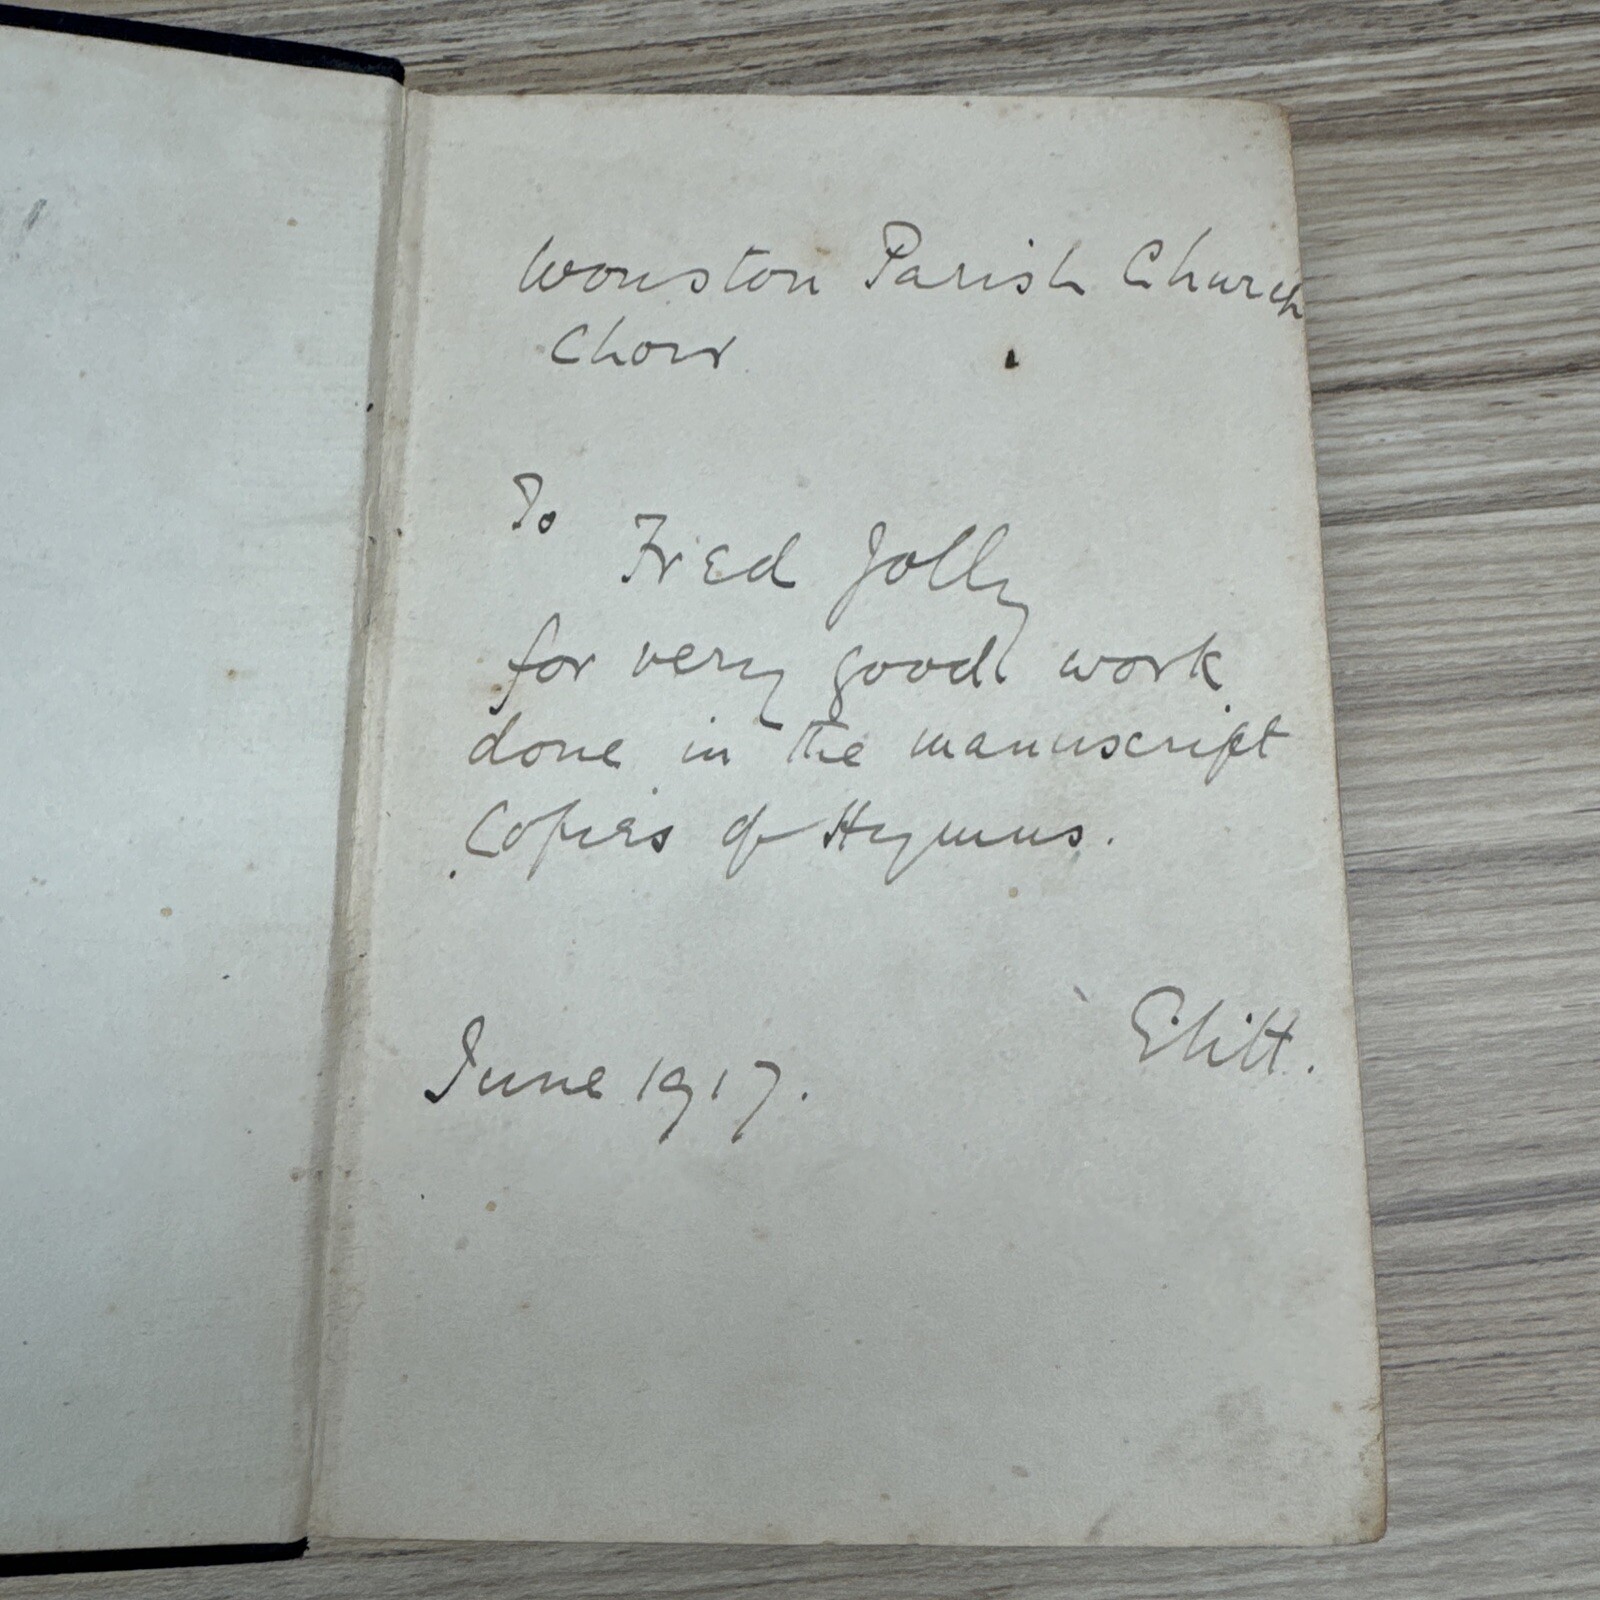 Wonston Parish Church
Choir
To
Fred Jolly
for very good work
done in the manuscript
Copies of Hymns.
June 1917.